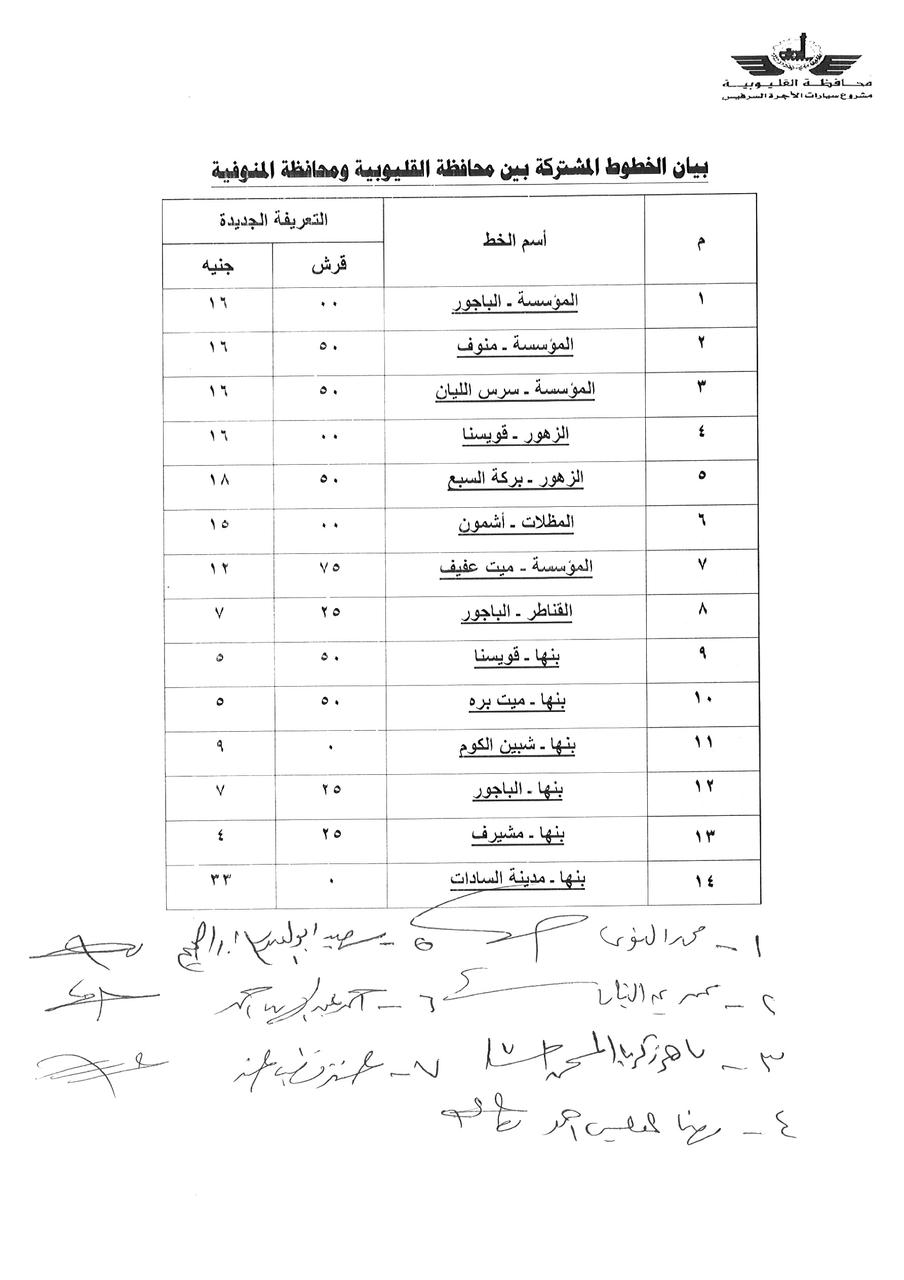 محافظة القليوبية
مشروع سيارات الأجرة السرفيس
بيان الخطوط المشتركة بين محافظة القليوبية ومحافظة المنوفية
م أسم الخط التعريفة الجديدة
قرش جنيه
١ المؤسسة ـ الباجور ٠٠ ١٦
٢ المؤسسة ـ منوف ٥٠ ١٦
٣ المؤسسة ـ سرس الليان ٥٠ ١٦
٤ الزهور ـ قويسنا ٠٠ ١٦
٥ الزهور ـ بركة السبع ٥٠ ١٨
٦ المظلات ـ أشمون ٠٠ ١٥
٧ المؤسسة ـ ميت عفيف ٧٥ ١٢
٨ القناطر ـ الباجور ٢٥ ٧
٩ بنها ـ قويسنا ٥٠ ٥
١٠ بنها ـ ميت بره ٥٠ ٥
١١ بنها ـ شبين الكوم ٠ ٩
١٢ بنها ـ الباجور ٢٥ ٧
١٣ بنها ـ مشيرف ٢٥ ٤
١٤ بنها ـ مدينة السادات ٠ ٣٣
١ـ محمد ٥ـ
٢ـ ٦ـ احمد احمد
٣ـ ماهر زكريا ٧ـ
٤ـ رضا احمد